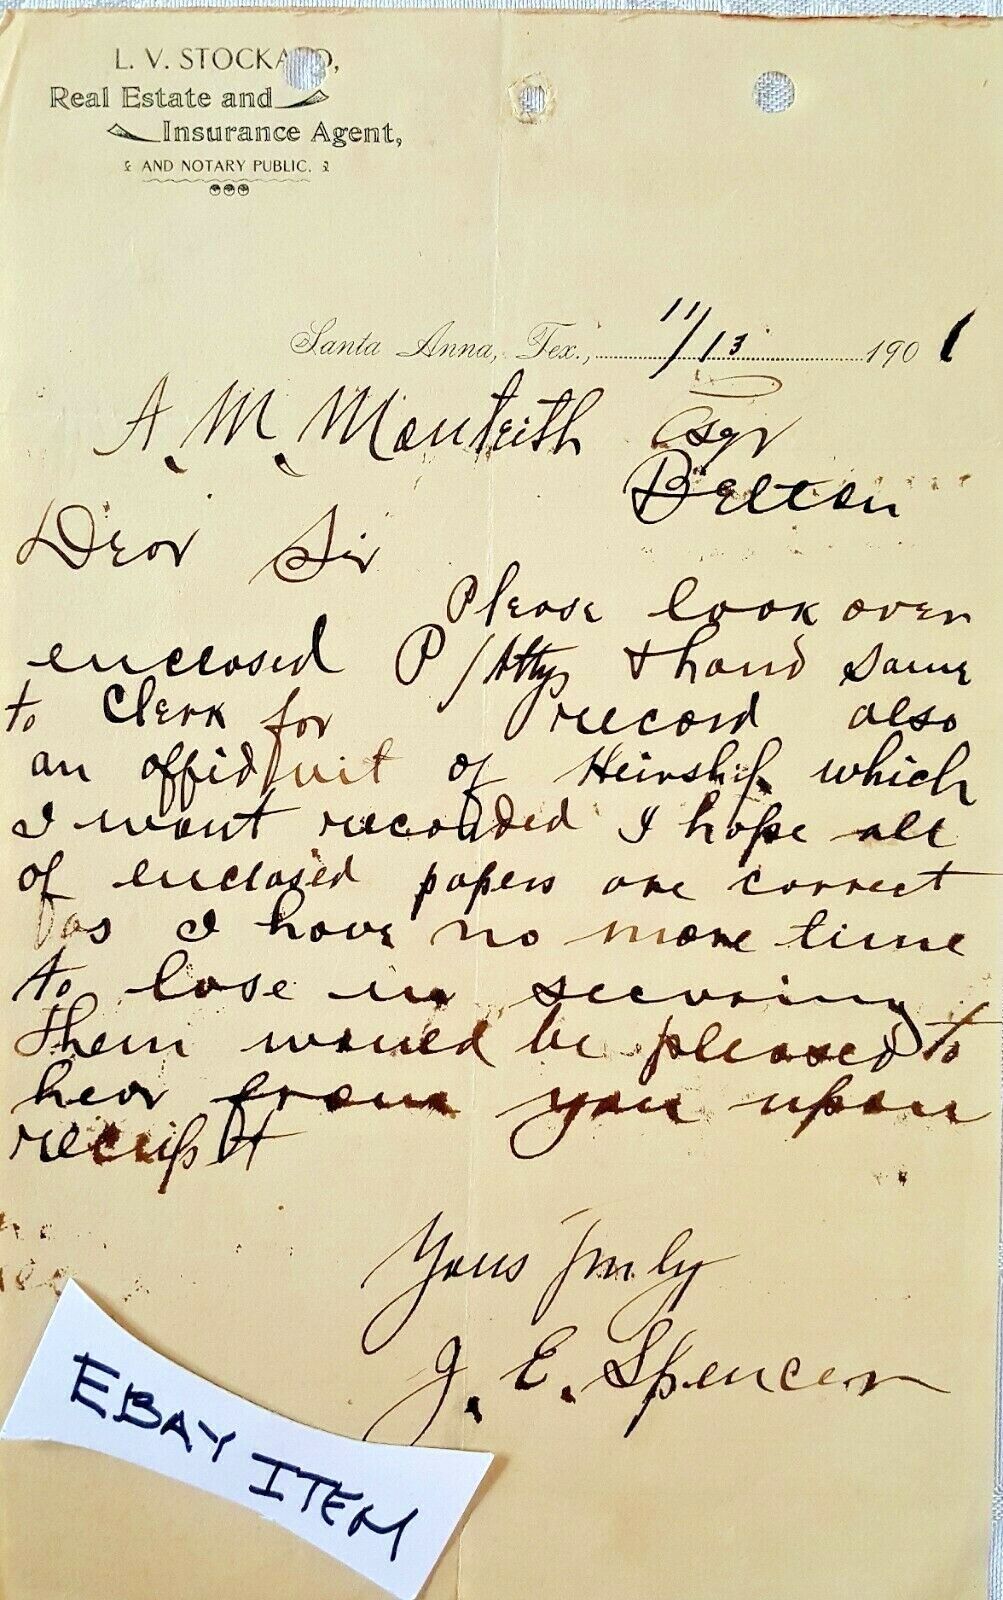 L. V. STOCKARD,
Real Estate and
Insurance Agent,
AND NOTARY PUBLIC.
Santa Anna, Tex., 11/13 1901
A. M. Monteith Esqr
Belton
Dear Sir
Please look over
enclosed P/Attys & hand same
to Clerk for record also
an affidavit of Heirship which
I want recorded I hope all
of enclosed papers are correct
as I have no more time
to lose in securing
them would be pleased to
hear from you upon
receipt
Yours Truly
J. E. Spencer
EBAY ITEM